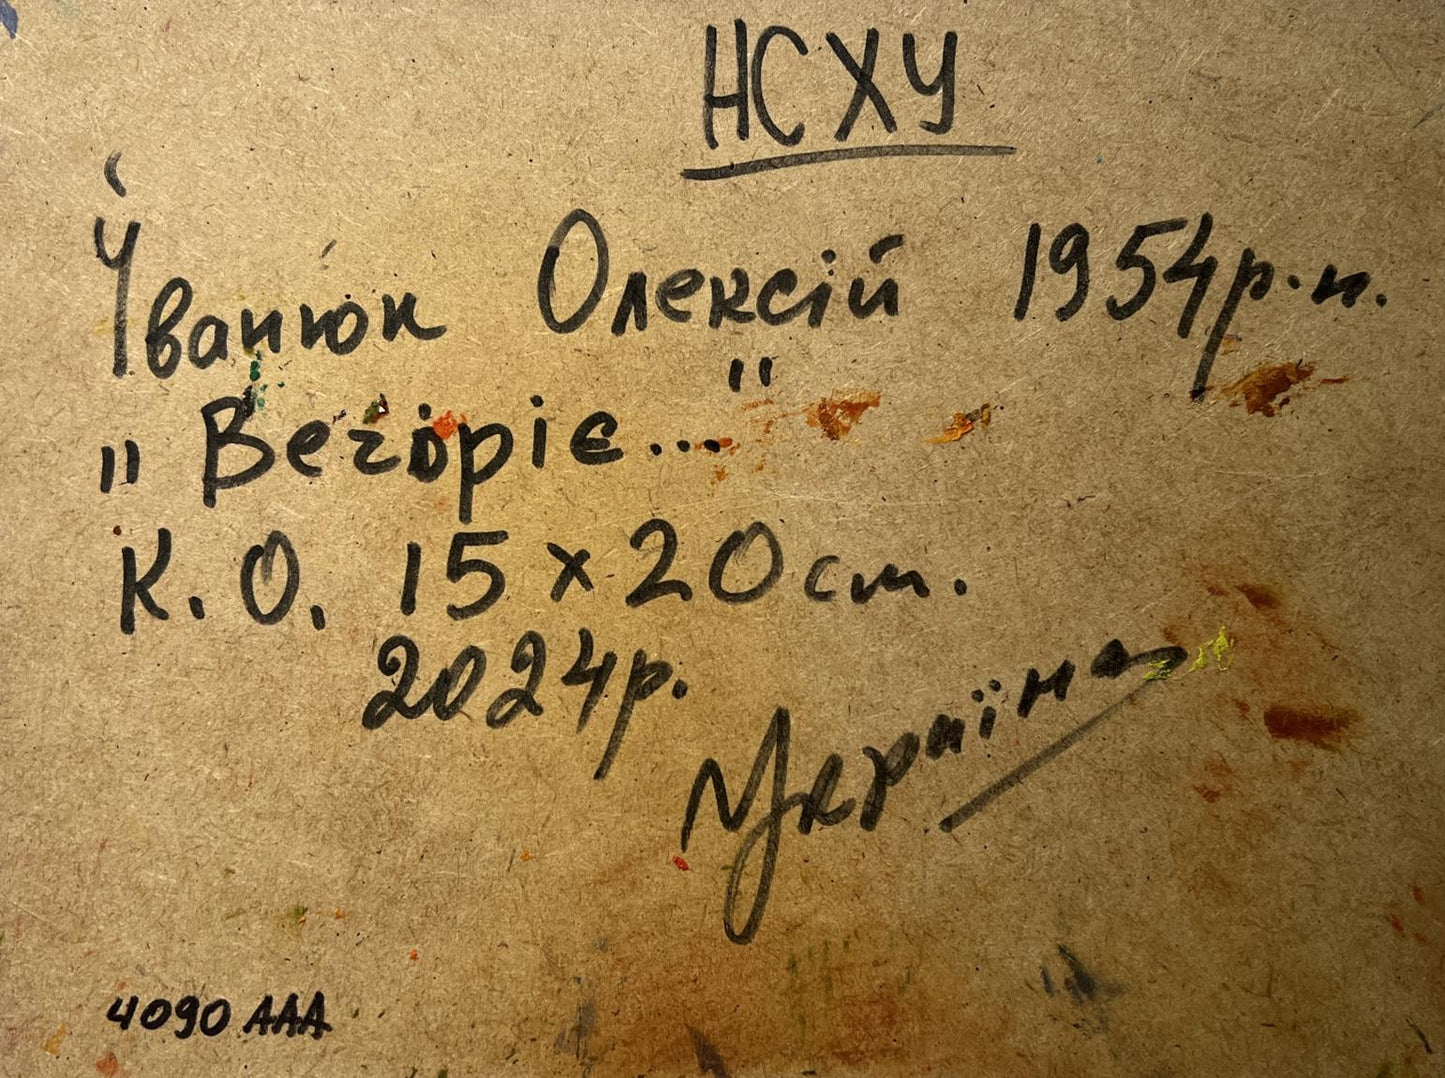 НСХУ
Іванюк Олексій 1954 р.н.
"Вечоріє..."
К. О. 15 x 20 см.
2024р.
Україна
4090 AAA